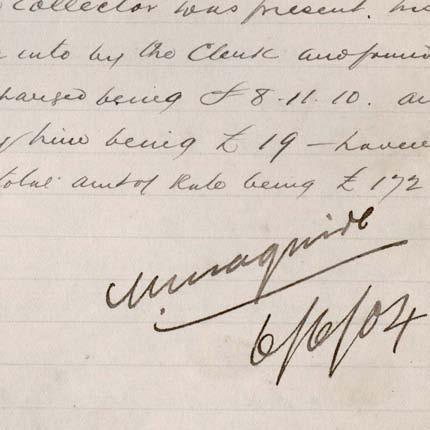 Collector was present.
into by the Clerk and found
charged being £8.11.10. a
him being £19 – howev
total amt of Rate being £172
6/6/04